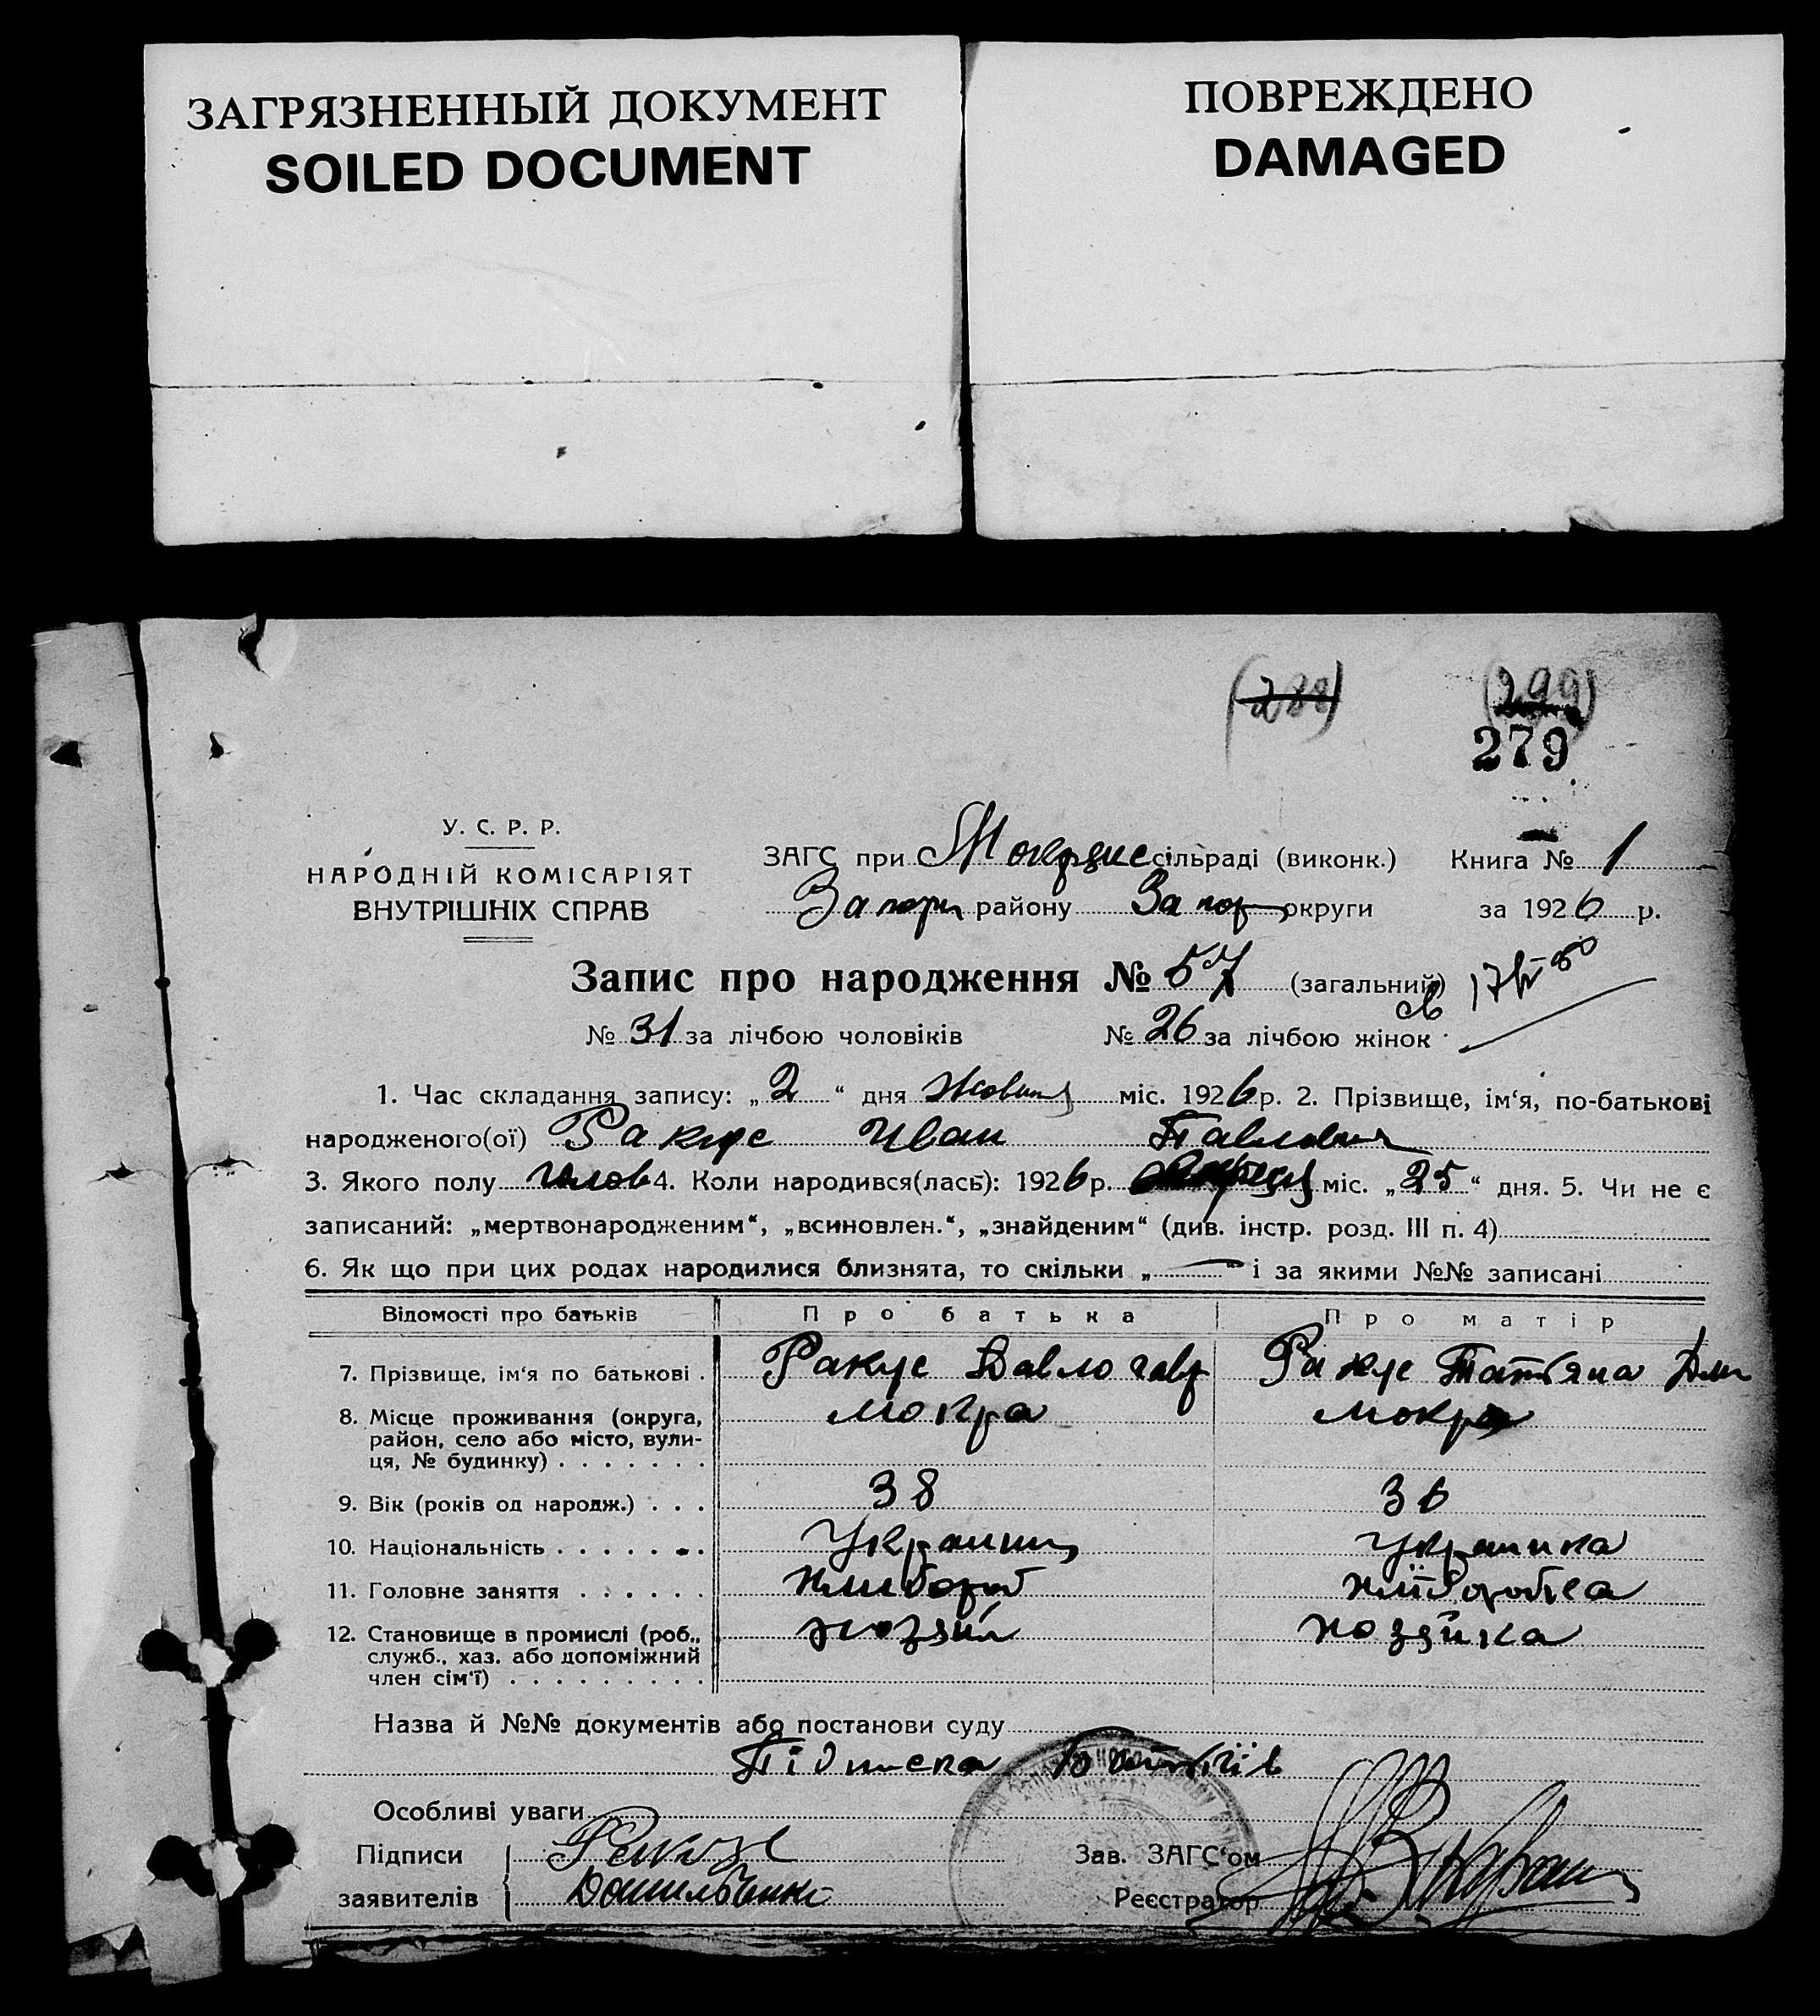 ЗАГРЯЗНЕННЫЙ ДОКУМЕНТ
SOILED DOCUMENT
ПОВРЕЖДЕНО
DAMAGED
(288) (299)
279
У. С. Р. Р.
НАРОДНІЙ КОМІСАРІЯТ
ВНУТРІШНІХ СПРАВ
ЗАГС при сільраді (виконк.) Книга № 1
району Запор округи за 1926 р.
Запис про народження № 57 (загальний)
№ 31 за лічбою чоловіків № 26 за лічбою жінок
1. Час складання запису: „2“ дня міс. 1926 р. 2. Прізвище, ім‘я, по-батькові
народженого(ої) Ракус Иван
3. Якого полу 4. Коли народився(лась): 1926 р. міс. „25“ дня. 5. Чи не є
записаний: „мертвонародженим“, „всиновлен.“, „знайденим“ (див. інстр. розд. III п. 4)
6. Як що при цих родах народилися близнята, то скільки „—“ і за якими №№ записані
Відомості про батьків Про батька Про матір
7. Прізвище, ім‘я по батькові . Ракус Ракус Татьяна
8. Місце проживання (округа, Мокра Мокра
район, село або місто, вули-
ця, № будинку) . . . . . . .
9. Вік (років од народж.) . . . 38 36
10. Національність . . . . . . .
11. Головне заняття . . . . . .
12. Становище в промислі (роб.,
служб., хаз. або допоміжний
член сім‘ї) . . . . . . . . .
Назва й №№ документів або постанови суду
Підписка
Особливі уваги
Підписи Зав. ЗАГС‘ом
заявителів Реєстратор